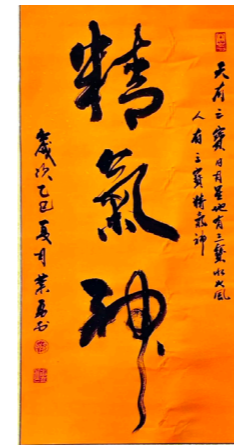 天有三寶日月星地有三寶水火風
人有三寶精氣神
精氣神
歲次乙巳夏月